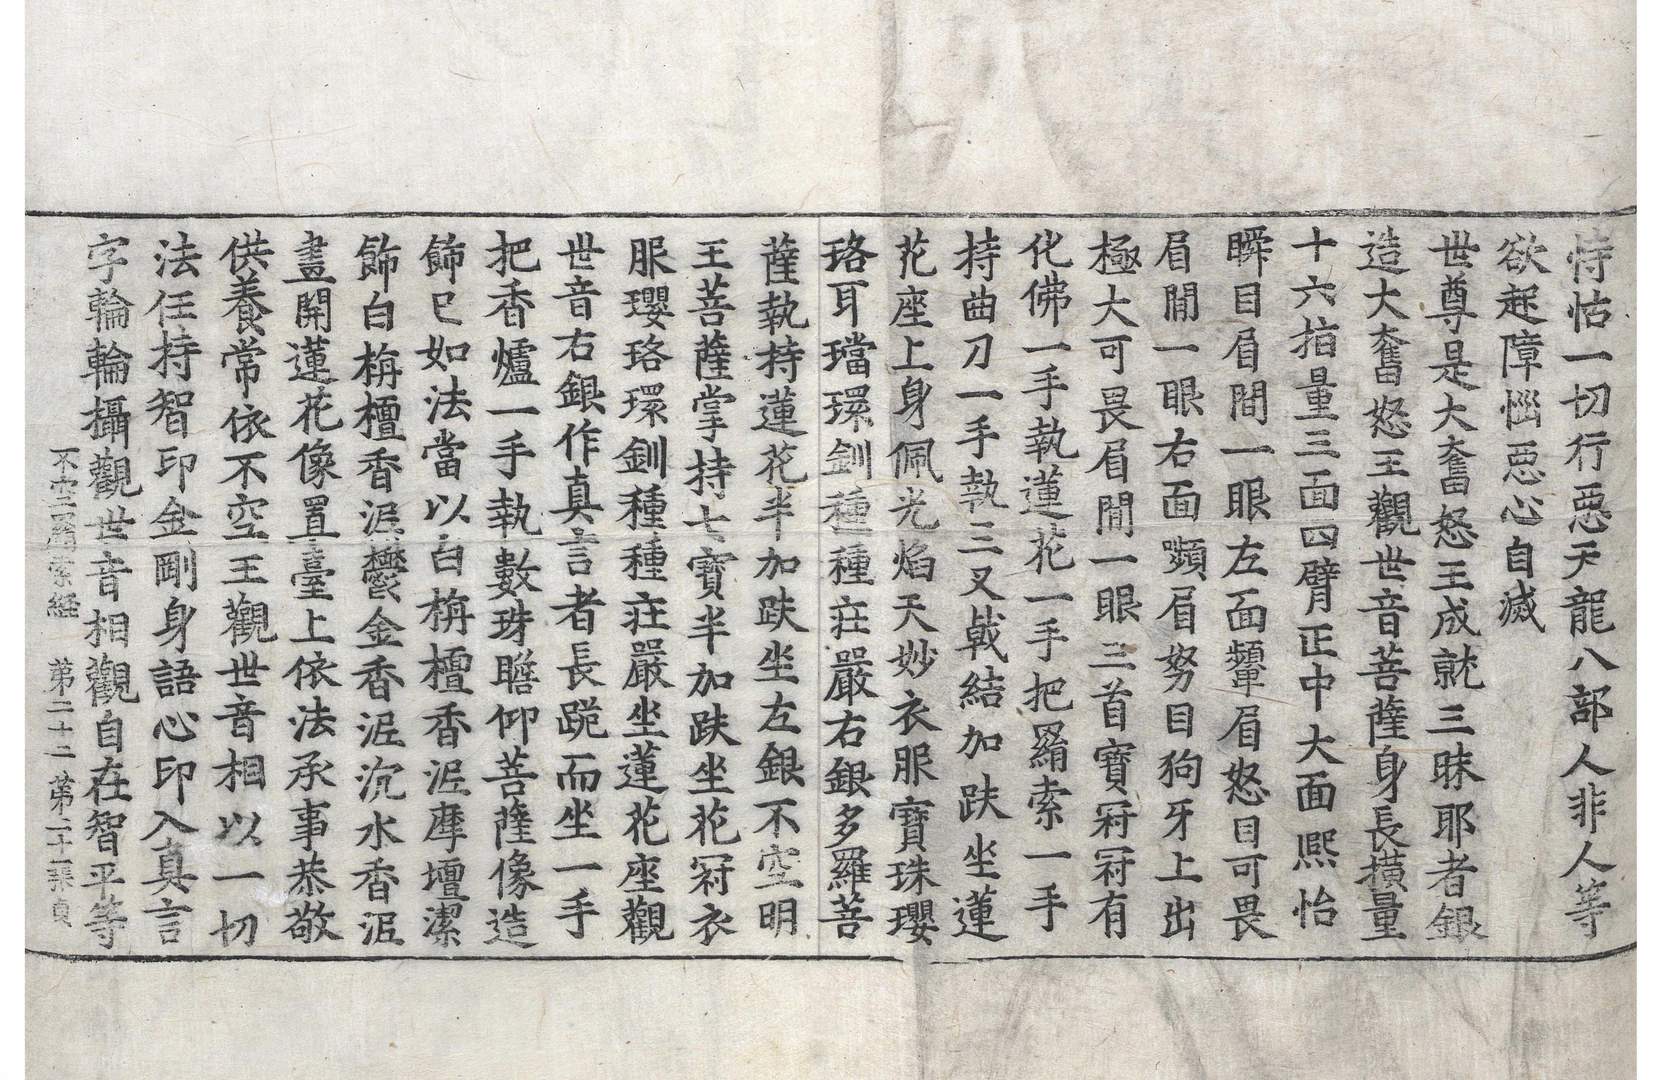 恃怙一切行惡天龍八部人非人等
欲起障惱惡心自滅
世尊是大奮怒王成就三昧耶者銀
造大奮怒王觀世音菩薩身長橫量
十六指量三面四臂正中大面熙怡
瞬目眉間一眼左面顰眉怒目可畏
眉間一眼右面嚬眉努目狗牙上出
極大可畏眉間一眼三首寶冠冠有
化佛一手執蓮花一手把羂索一手
持曲刀一手執三叉戟結加趺坐蓮
花座上身佩光焰天妙衣服寶珠瓔
珞耳璫環釧種種莊嚴右銀多羅菩
薩執持蓮花半加趺坐左銀不空明
王菩薩掌持七寶半加趺坐花冠衣
服瓔珞環釧種種莊嚴坐蓮花座觀
世音右銀作真言者長跪而坐一手
把香爐一手執數珠瞻仰菩薩像造
飾已如法當以白栴檀香泥摩壇潔
飾白栴檀香泥欝金香泥沉水香泥
畫開蓮花像置臺上依法承事恭敬
供養常依不空王觀世音相以一切
法任持智印金剛身語心印入真言
字輪輪攝觀世音相觀自在智平等
不空羂索経 第二十二 第二十一張 貞